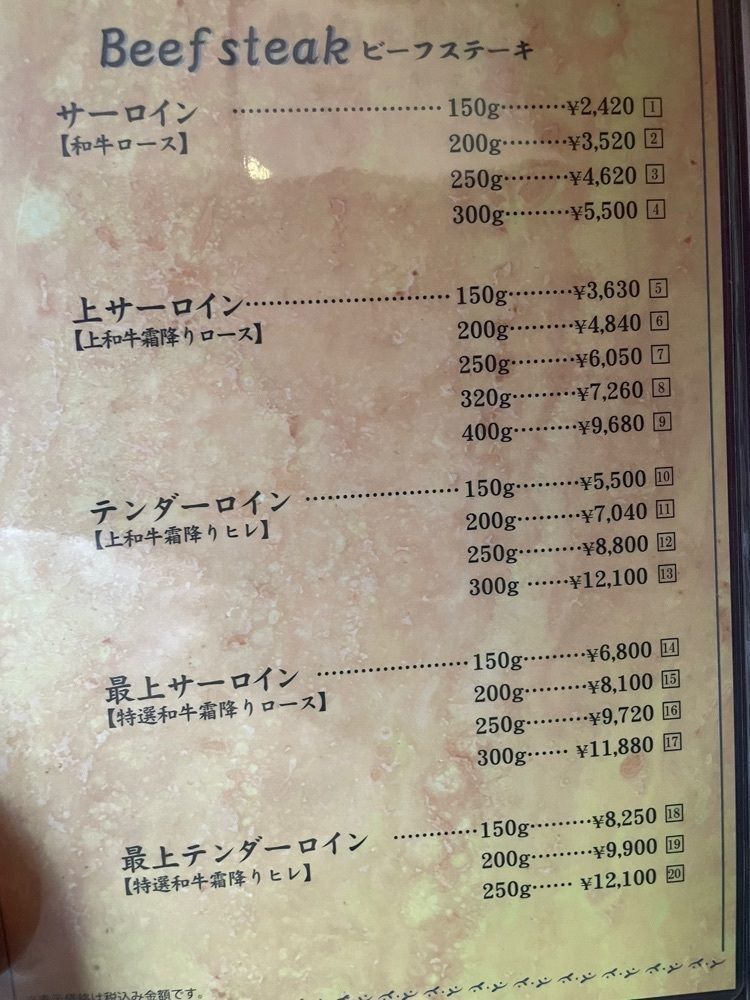 Beef steak ビーフステーキ
サーロイン ……………………… 150g………¥2,420 1
【和牛ロース】 200g………¥3,520 2
250g………¥4,620 3
300g………¥5,500 4
上サーロイン……………………… 150g………¥3,630 5
【上和牛霜降りロース】 200g………¥4,840 6
250g………¥6,050 7
320g………¥7,260 8
400g………¥9,680 9
テンダーロイン ………………… 150g………¥5,500 10
【上和牛霜降りヒレ】 200g………¥7,040 11
250g………¥8,800 12
300g ……¥12,100 13
最上サーロイン ………………… 150g………¥6,800 14
【特選和牛霜降りロース】 200g………¥8,100 15
250g………¥9,720 16
300g…… ¥11,880 17
最上テンダーロイン ………… 150g………¥8,250 18
【特選和牛霜降りヒレ】 200g………¥9,900 19
250g…… ¥12,100 20
価格は税込み金額です。